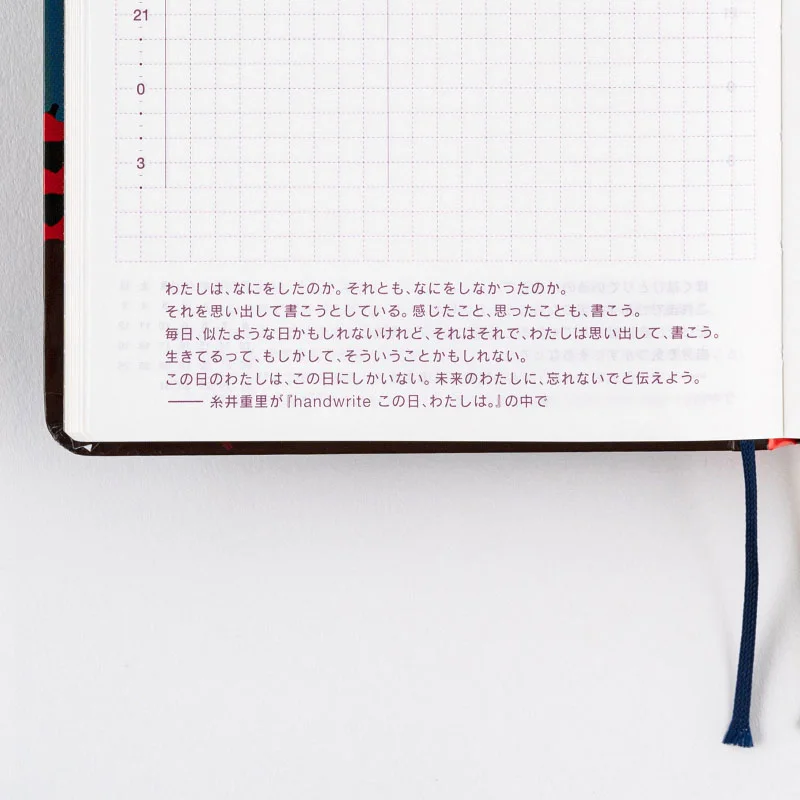 21
0
3
わたしは、なにをしたのか。それとも、なにをしなかったのか。
それを思い出して書こうとしている。感じたこと、思ったことも、書こう。
毎日、似たような日かもしれないけれど、それはそれで、わたしは思い出して、書こう。
生きてるって、もしかして、そういうことかもしれない。
この日のわたしは、この日にしかいない。未来のわたしに、忘れないでと伝えよう。
―― 糸井重里が『handwrite この日、わたしは。』の中で